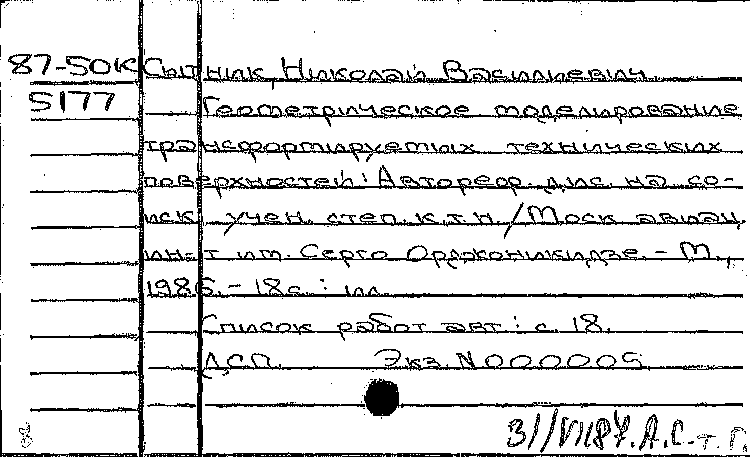 87-50к Сытник, Николай Васильевич.
5177 Геометрическое моделирование
трансформируемых технических
поверхностей: Автореф. дис. на со-
иск. учен. степ. к.т.н. /Моск авиац.
ин-т им. Серго Орджоникидзе. - М.,
1986. - 18с. : ил.
Список работ авт.: с. 18.
ДСП. Экз. N000005
8